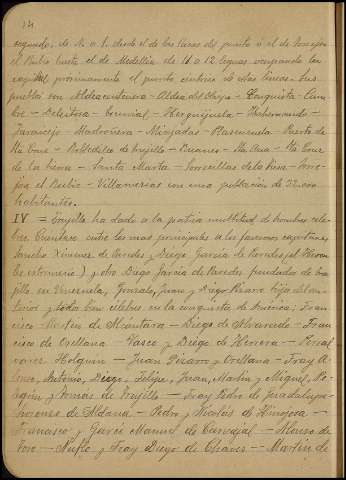 segundo, de N. a S. desde el de las casas del puerto a el de Torrejon
el Rubio hasta el de Medellin de 11 a 12 leguas ocupando la
capital proximamente el punto centrico de estas lineas. Sus
pueblos son Aldeacentenera - Aldea del Obispo - Conquista - Cum-
bre - Deleitosa - - Herguijuela - Ibahernando -
Jaraicejo - Madroñera - Miajadas - Plasenzuela - Puerto de
Sta Cruz - Robledillo de Trujillo - Ruanes - Sta Ana - Sta Cruz
de la Sierra - Santa Marta - Torrecillas de la Tiesa - Torre-
jon el Rubio - Villamesias con una poblacion de 32.000
habitantes.
IV = Trujillo ha dado a la patria multitud de hombres cele-
bres. Cuentanse entre los mas principales a los famosos capitanes
Sancho Ximenez de Paredes y Diego Garcia de Paredes (el
), y otro Diego Garcia de Paredes fundador de Tru-
jillo en Venezuela, Gonzalo, Juan y Diego Pizarro hijo del an-
terior y todos bien celebres en la conquista de America; Fran-
cisco Martin de Alcantara - Diego de Alvarado - Fran-
cisco de Orellana - Vasco y Diego de Herrera -
Holguin - Juan Pizarro y Orellana - Fray A
lonso, Antonio, Diego, Felipe, Juan, Martin y Miguel,
y Tomas de Trujillo - Fray Pedro de Guadalupe
de Aldana - Pedro y Nicolas de Hinojosa -
Francisco y Garci Manuel de Carvajal - Alonso de
Toro - Nuflo y Fray Diego de Chaves - Martin de